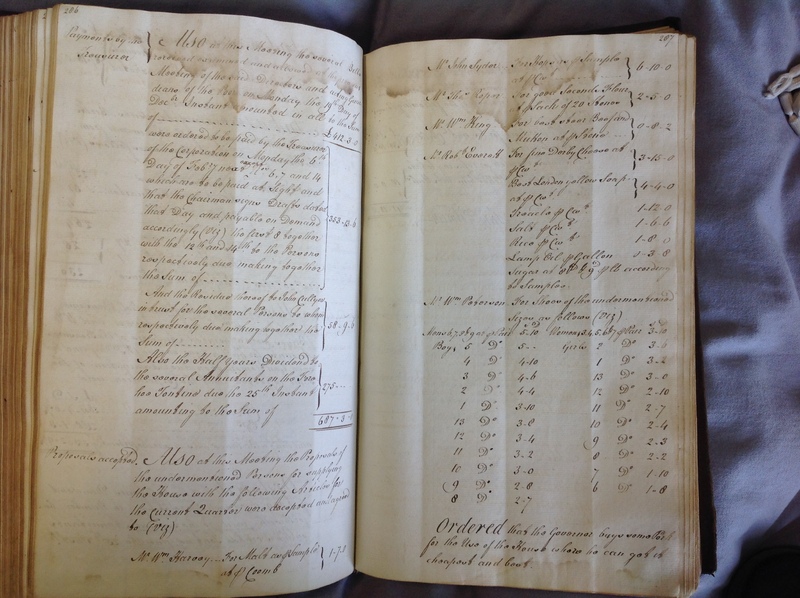 206
Payments by the
Treasurer
Also at this Meeting the several Bills
Meeting of the said Directors and acting Guar
dians of the Poor on Monday the 19th Day of
Decr. Instant amounted in all to the Sum
of £412-3-0
were ordered to be paid by the Treasurer
of the Corporation on Monday the 6th
Day of Feby. next 6.7 and 14
which are to be paid at Sight and
that the Chairman signs Drafts dated
that Day and payable on Demand
accordingly (Viz) the first 8 together
with the 12th and 14th to the Persons
respectively due making together
the Sum of
And the Residue thereof to John
in trust for the several Persons to whom
respectively due making together the
Sum of 58-9-6
Also the Half Years Dividend to
the several Annuitants on the
Tontine due the 25th Instant
amounting to the Sum of 275--
687-3-0
Proposals accepted.
Also at this Meeting the Proposals of
the undermentioned Persons for supplying
the House with the following Articles for
the Current Quarter were accepted and agreed
to (Viz)
Mr. Wm. Harvey For Malt as Sample
at p Coomb 1-7-
207
Mr. John For Hops p Sample
at p Cwt. 6-10-0
Mr. Thos. For good Seconds Flour
p Sack of 20 Stones 2-5-0
Mr. Wm. King For best Steer Beef and
Mutton at p Stone 0-8-2
Mr. Robt. Everett For fine Derby Cheese at
p Cwt. 3-15-0
Best London yellow Soap
at p Cwt. 4-4-0
Treacle p Cwt. 1-12-0
Salt p Cwt. 1-6-6
Rice p Cwt. 1-8-0
Lamp Oil p Gallon 0-3-8
Sugar at p lb according
to Samples
Mr. Wm. Paterson For Shoes of the undermentioned
Sizes as follows (Viz)
Mens 6, 7, 8 & 9 at p Pair 5-10 Womens 3, 4, 5, 6 & 7 p Pair 3-10
Boys 5 Do. 5-- Girls 2 Do. 3-6
4 Do. 4-10 1 Do. 3-2
3 Do. 4-6 13 Do. 3-0
2 Do. 4-4 12 Do. 2-10
1 Do. 3-10 11 Do. 2-7
13 Do. 3-8 10 Do. 2-4
12 Do. 3-4 9 Do. 2-3
11 Do. 3-2 8 Do. 2-2
10 Do. 3-0 7 Do. 1-10
9 Do. 2-8 6 Do. 1-8
8 Do. 2-7
Ordered that the Governor buys some
for the Use of the House where he can get it
cheapest and best.